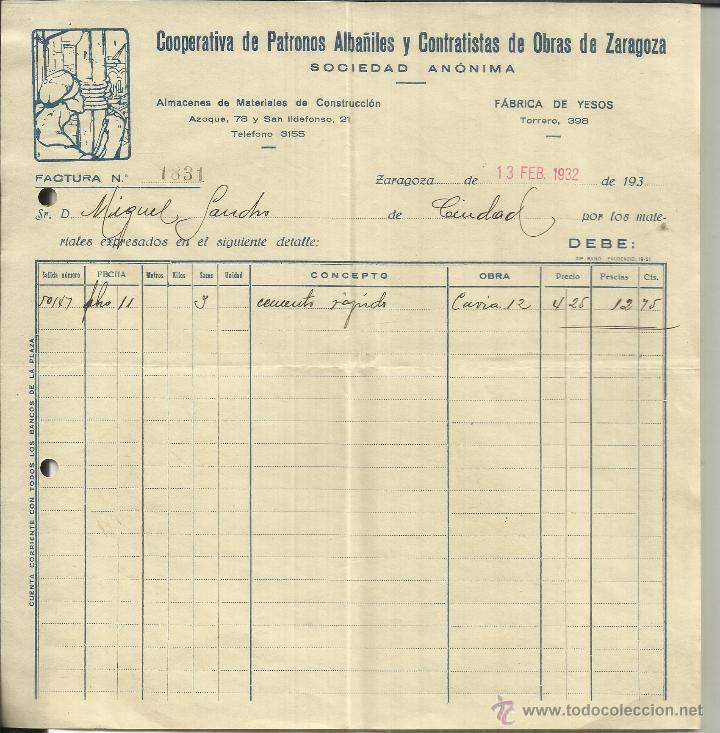 Cooperativa de Patronos Albañiles y Contratistas de Obras de Zaragoza
SOCIEDAD ANÓNIMA
Almacenes de Materiales de Construcción
Azoque, 78 y San Ildefonso, 21
Teléfono 3155
FÁBRICA DE YESOS
Torrero, 398
FACTURA N.º 1831
Zaragoza de 13 FEB. 1932 de 193
Sr. D. Miguel Sancho de Ciudad por los mate-
riales expresados en el siguiente detalle: DEBE:
Salida número FECHA Metros Kilos Sacos Unidad CONCEPTO OBRA Precio Pesetas Cts.
50147 11 3 cemento rápido Cavia 12 4 25 12 75
CUENTA CORRIENTE CON TODOS LOS BANCOS DE LA PLAZA
www.todocoleccion.net